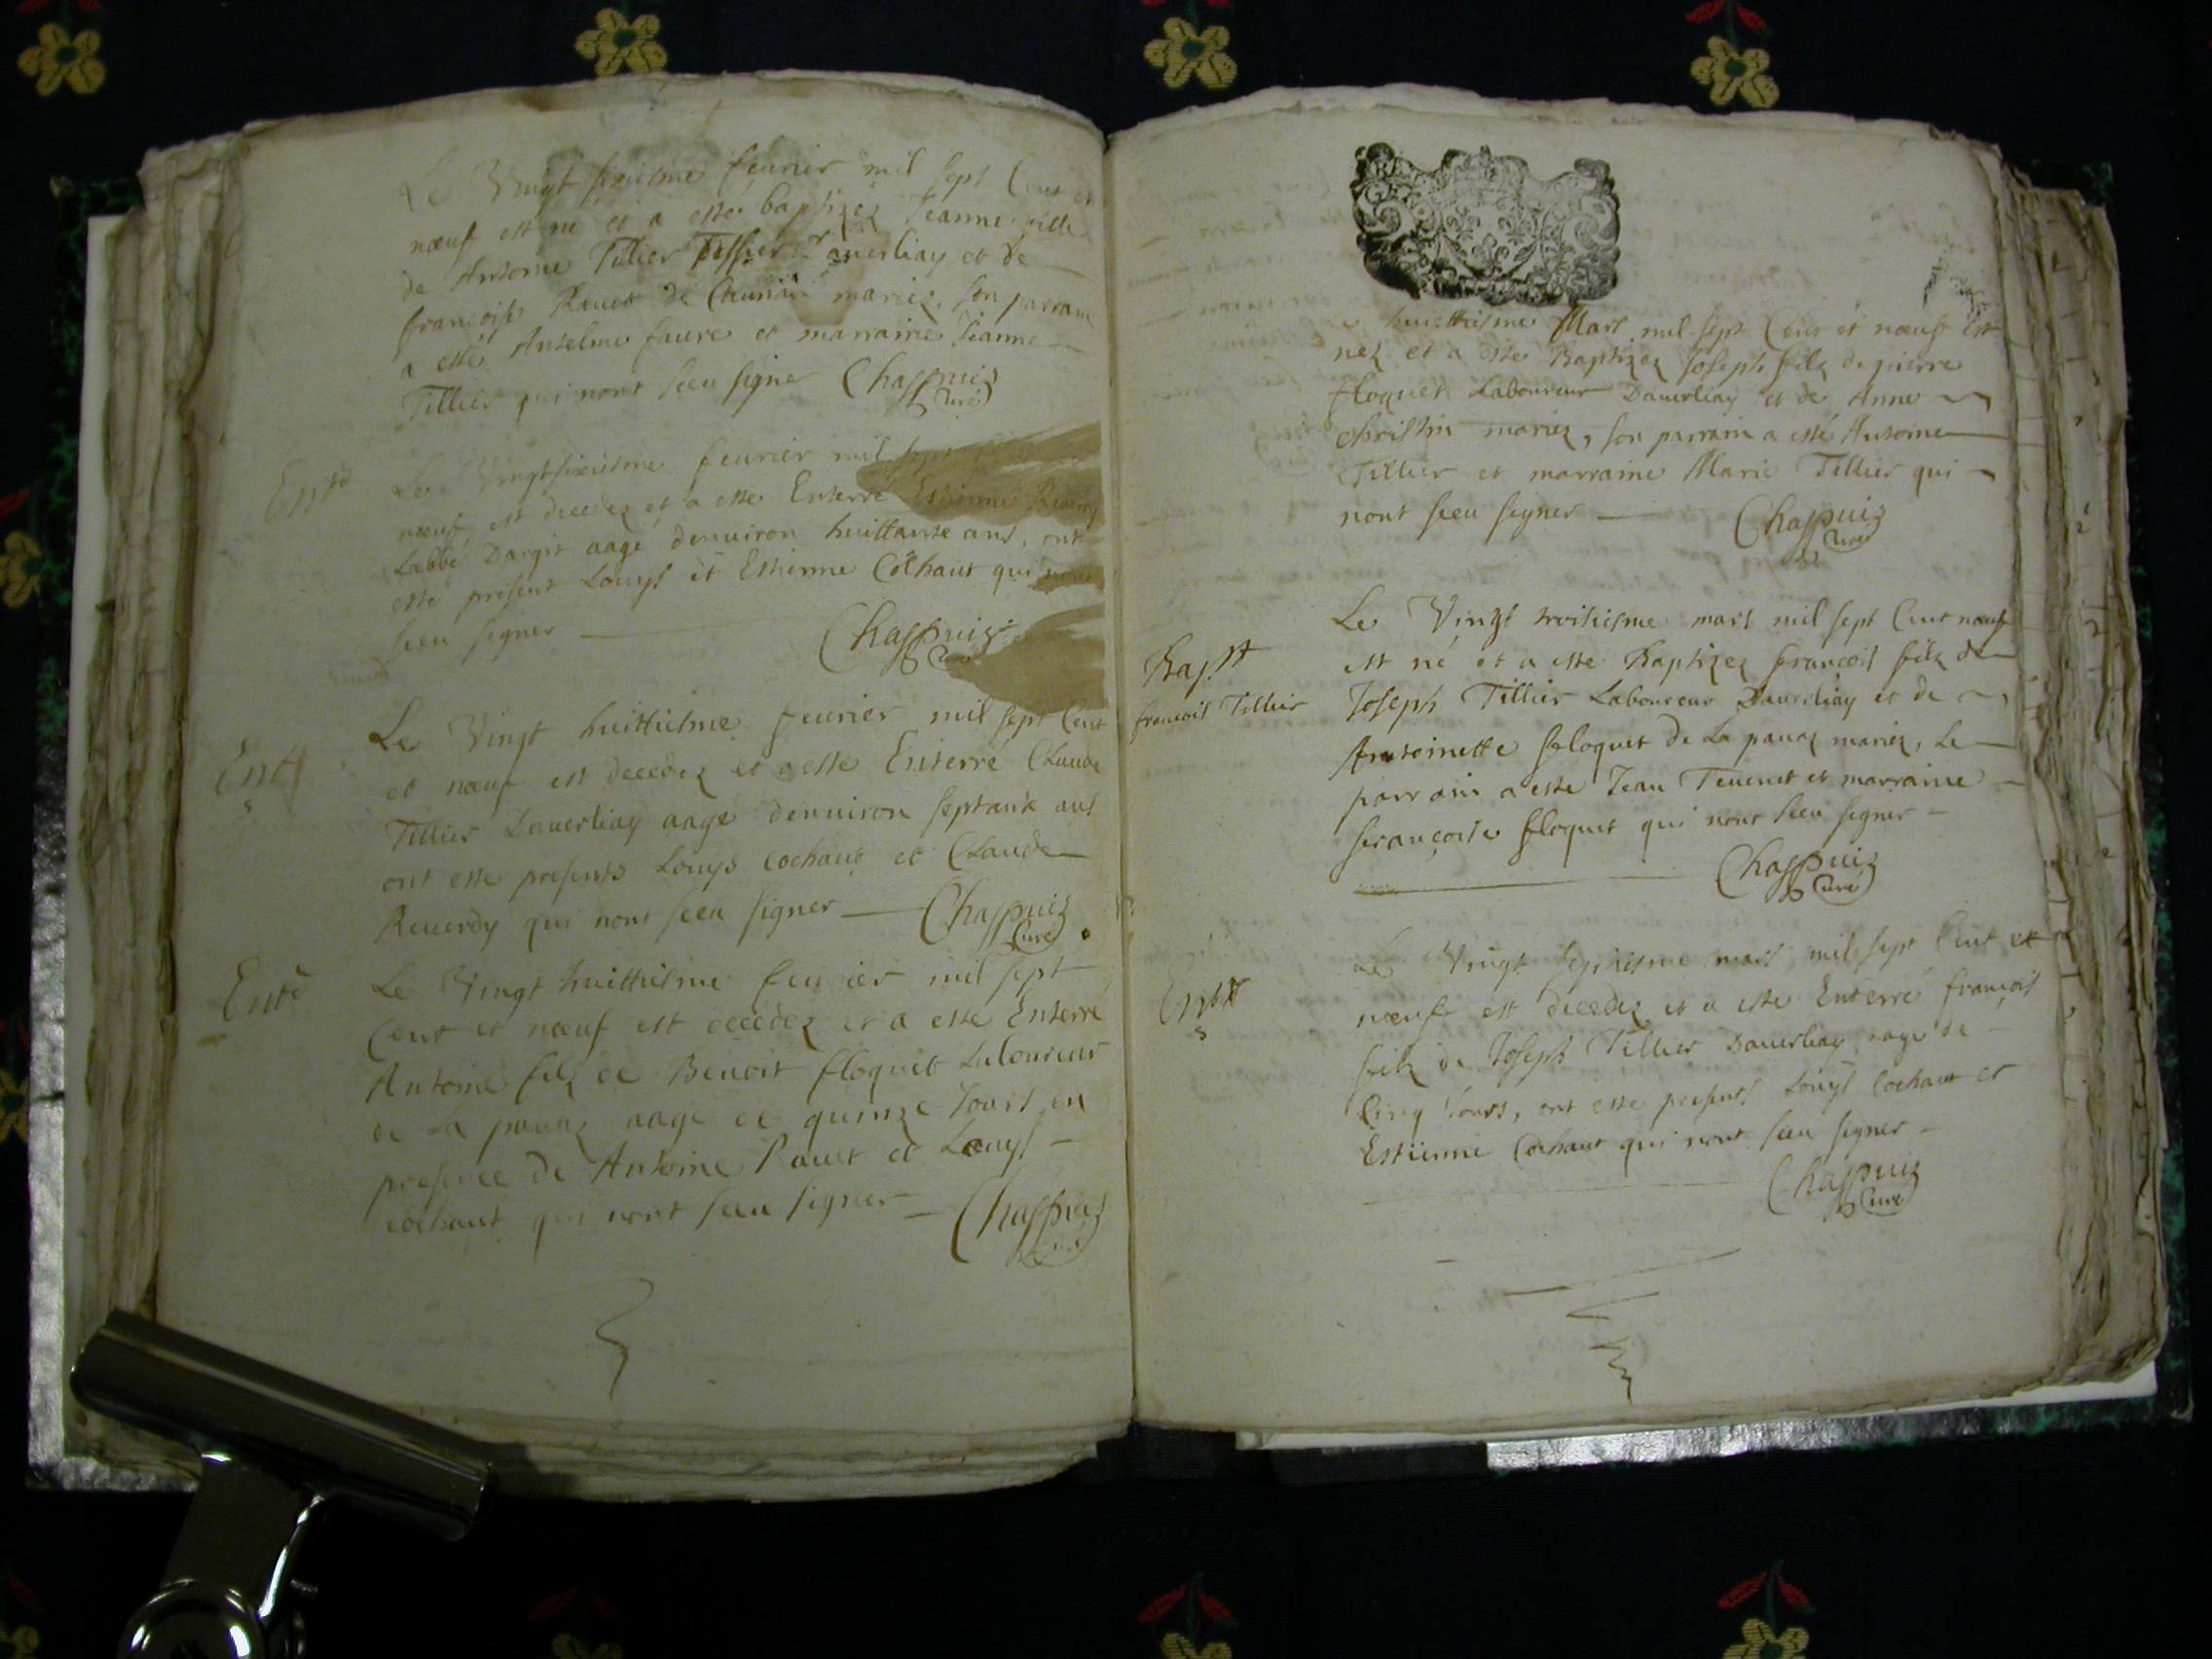 Le Vingt sixiesme feurier mil sept Cent et
nœuf est ne et a este baptizez Jeanne fille
de Antoine Tillier Tissier Dauerliay et de
francoise Reuet de mariez, son parrain
a esté Anselme faure et marraine Jeanne
Tillier qui nont sceu signe Chappuiz
Curé
Entᵉ
Le Vingtsixiesme feurier mil sept
nœuf est decedez et a este Enterré Estienne Reuerdy
Labbé Dargit aagé denuiron huittante ans, ont
esté present Louys et Estienne Cochaut qui nont
sceu signer Chappuiz
Curé
Entᵉ
Le Vingt huittiesme feurier mil sept Cent
et nœuf est decedez et a este Enterré Claude
Tillier Dauerliay aage denuiron septante ans
ont este presents Louys Cochaut et Claude
Reuerdy qui nont sceu signer Chappuiz
Curé
Entᵉ
Le Vingt huittiesme feurier mil sept
Cent et nœuf est decedez et a este Enterré
Antoine filz de Benoit floquet Laboureur
de La pauaz aage de quinze Jours en
presence de Antoine Pauet et Louys
cochaut qui nont sceu signer Chappuiz
Curé
Le huittiesme Mars mil sept Cent et nœuf Est
nez et a este Baptizez Joseph filz de pierre
floquet Laboureur Dauerliay et de Anne
christin mariez, son parrain a esté Antoine
Tillier et marraine Marie Tillier qui
nont sceu signer Chappuiz
Curé
Bapᵗ
francois Tillier
Le Vingt troisiesme mars mil sept Cent nœuf
est né et a este Baptizez françois filz de
Joseph Tillier Laboureur Dauerliay et de
Antoinette floquet de La pauaz mariez, Le
parrain a este Jean Teuenet et marraine
françoise floquet qui nont sceu signer
Chappuiz
Curé
Entᵉ
Le Vingt septiesme mars mil sept Cent et
nœuf est decedez et a este Enterré françois
filz de Joseph Tillier Dauerliay aage de
Cinq Jours, ont este presents Louys Cochaut et
Estienne Cochaut qui nont sceu signer
Chappuiz
Curé